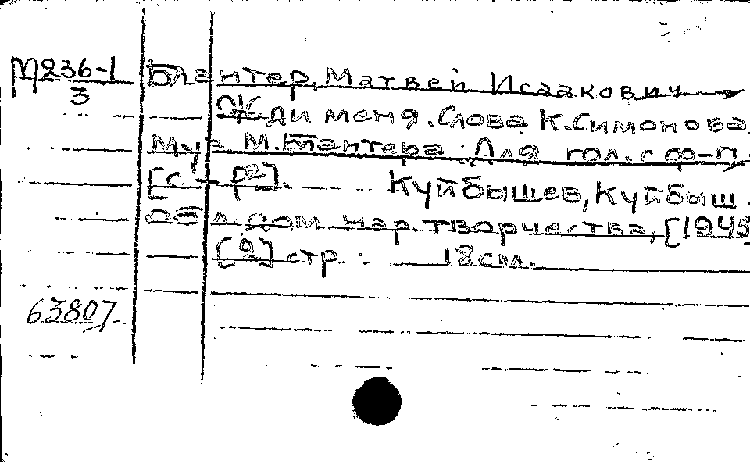 М236-1
3
Блантер, Матвей Исаакович
Жди меня. Слова К. Симонова
Муз. М. Блантера. Для гол. с ф-п.
Куйбышев, Куйбыш.
обл. дом нар. творчества, [1945
[2] стр. 18 см.
63807